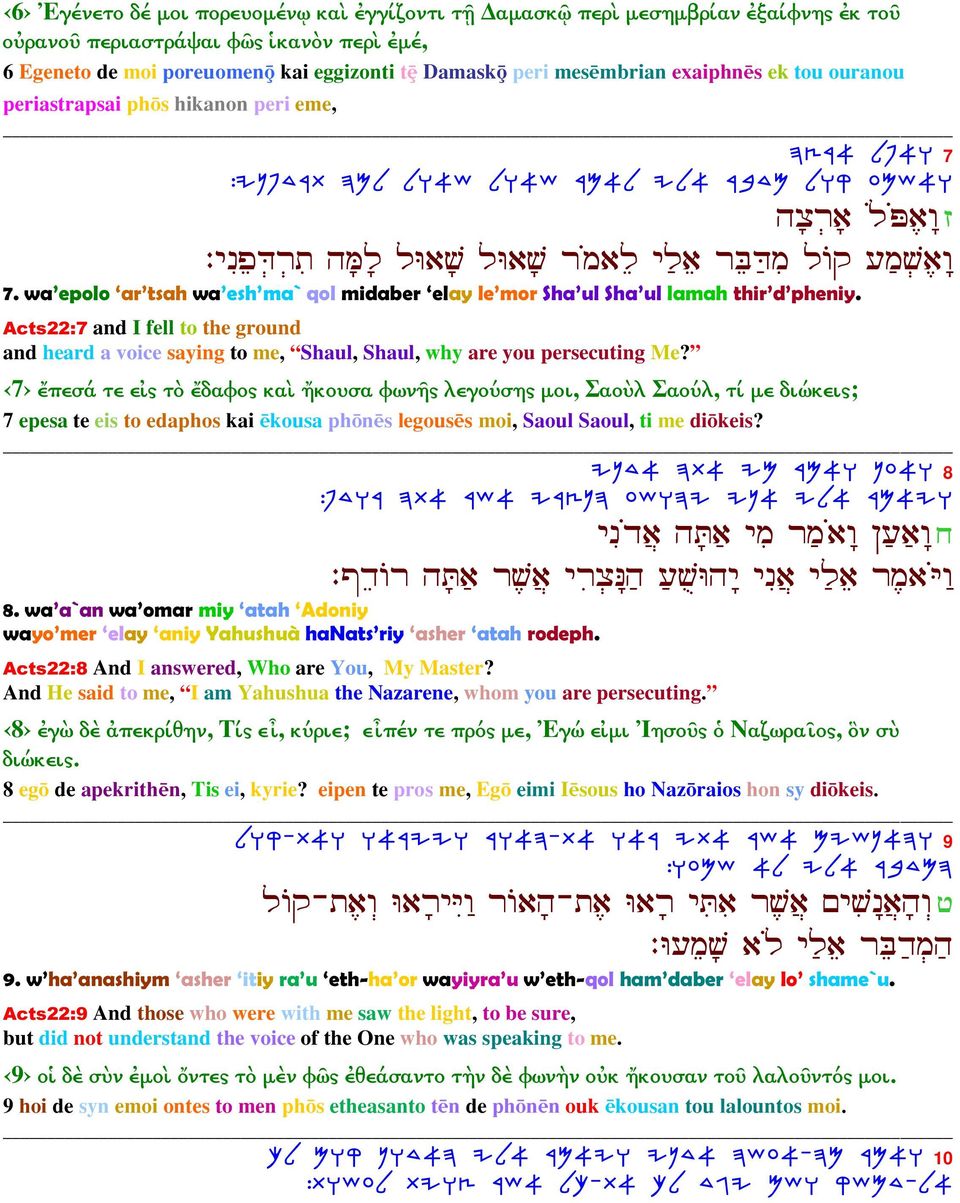 ‹6› Ἐγένετο δέ μοι πορευομένῳ καὶ ἐγγίζοντι τῇ Δαμασκῷ περὶ μεσημβρίαν ἐξαίφνης ἐκ τοῦ
οὐρανοῦ περιαστράψαι φῶς ἱκανὸν περὶ ἐμέ,
6 Egeneto de moi poreuomenō̧ kai eggizonti tȩ̄ Damaskō̧ peri mesēmbrian exaiphnēs ek tou ouranou
periastrapsai phōs hikanon peri eme,
7 𐤅𐤀𐤐𐤋 𐤀𐤓𐤑𐤄
𐤅𐤀𐤔𐤌𐤏 𐤒𐤅𐤋 𐤌𐤃𐤁𐤓 𐤀𐤋𐤉 𐤋𐤀𐤌𐤓 𐤔𐤀𐤅𐤋 𐤔𐤀𐤅𐤋 𐤋𐤌𐤄 𐤕𐤓𐤃𐤐𐤍𐤉:
ז וָאֶפֹּל אָרְצָה
וָאֶשְׁמַע קוֹל מִדַּבֵּר אֵלַי לֵאמֹר שָׁאוּל שָׁאוּל לָמָּה תִרְדְּפֵנִי:
7. wa’epolo ‘ar’tsah wa’esh’ma` qol midaber ‘elay le’mor Sha’ul Sha’ul lamah thir’d’pheniy.
Acts22:7 and I fell to the ground
and heard a voice saying to me, “Shaul, Shaul, why are you persecuting Me?”
‹7› ἔπεσά τε εἰς τὸ ἔδαφος καὶ ἤκουσα φωνῆς λεγούσης μοι, Σαοὺλ Σαούλ, τί με διώκεις;
7 epesa te eis to edaphos kai ēkousa phōnēs legousēs moi, Saoul Saoul, ti me diōkeis?
8 𐤅𐤀𐤏𐤍 𐤅𐤀𐤌𐤓 𐤌𐤉 𐤀𐤕𐤄 𐤀𐤃𐤍𐤉
𐤅𐤉𐤀𐤌𐤓 𐤀𐤋𐤉 𐤀𐤍𐤉 𐤉𐤄𐤅𐤔𐤏 𐤄𐤍𐤑𐤓𐤉 𐤀𐤔𐤓 𐤀𐤕𐤄 𐤓𐤅𐤃𐤐:
ח וָאַעַן וָאֹמַר מִי אַתָּה אֲדֹנִי
וַיֹּאמֶר אֵלַי אֲנִי יָהוּשֻׁעַ הַנָּצְרִי אֲשֶׁר אַתָּה רוֹדֵף:
8. wa’a`an wa’omar miy ‘atah ‘Adoniy
wayo’mer ‘elay ‘aniy Yahushuà haNats’riy ‘asher ‘atah rodeph.
Acts22:8 And I answered, Who are You, My Master?
And He said to me, “I am Yahushua the Nazarene, whom you are persecuting.”
‹8› ἐγὼ δὲ ἀπεκρίθην, Τίς εἶ, κύριε; εἶπέν τε πρός με, Ἐγώ εἰμι Ἰησοῦς ὁ Ναζωραῖος, ὃν σὺ
διώκεις.
8 egō de apekrithēn, Tis ei, kyrie? eipen te pros me, Egō eimi Iēsous ho Nazōraios hon sy diōkeis.
9 𐤅𐤄𐤀𐤍𐤔𐤉𐤌 𐤀𐤔𐤓 𐤀𐤕𐤉 𐤓𐤀𐤅 𐤀𐤕-𐤄𐤀𐤅𐤓 𐤅𐤉𐤉𐤓𐤀𐤅 𐤅𐤀𐤕-𐤒𐤅𐤋
𐤄𐤌𐤃𐤁𐤓 𐤀𐤋𐤉 𐤋𐤀 𐤔𐤌𐤏𐤅:
ט וְהָאֲנָשִׁים אֲשֶׁר אִתִּי רָאוּ אֶת־הָאוֹר וַיִּירָאוּ וְאֶת־קוֹל
הַמְדַבֵּר אֵלַי לֹא שָׁמֵעוּ:
9. w’ha’anashiym ‘asher ‘itiy ra’u ‘eth-ha’or wayiyra’u w’eth-qol ham’daber ‘elay lo’ shame`u.
Acts22:9 And those who were with me saw the light, to be sure,
but did not understand the voice of the One who was speaking to me.
‹9› οἱ δὲ σὺν ἐμοὶ ὄντες τὸ μὲν φῶς ἐθεάσαντο τὴν δὲ φωνὴν οὐκ ἤκουσαν τοῦ λαλοῦντός μοι.
9 hoi de syn emoi ontes to men phōs etheasanto tēn de phōnēn ouk ēkousan tou lalountos moi.
10 𐤅𐤀𐤌𐤓 𐤌𐤄-𐤀𐤏𐤔𐤄 𐤀𐤃𐤍𐤉 𐤅𐤉𐤀𐤌𐤓 𐤀𐤋𐤉 𐤄𐤀𐤃𐤅𐤍 𐤒𐤅𐤌 𐤋𐤊
𐤀𐤋-𐤃𐤌𐤔𐤒 𐤅𐤔𐤌 𐤉𐤂𐤃 𐤋𐤊 𐤀𐤕-𐤊𐤋 𐤀𐤔𐤓 𐤑𐤅𐤉𐤕 𐤋𐤏𐤔𐤅𐤕: